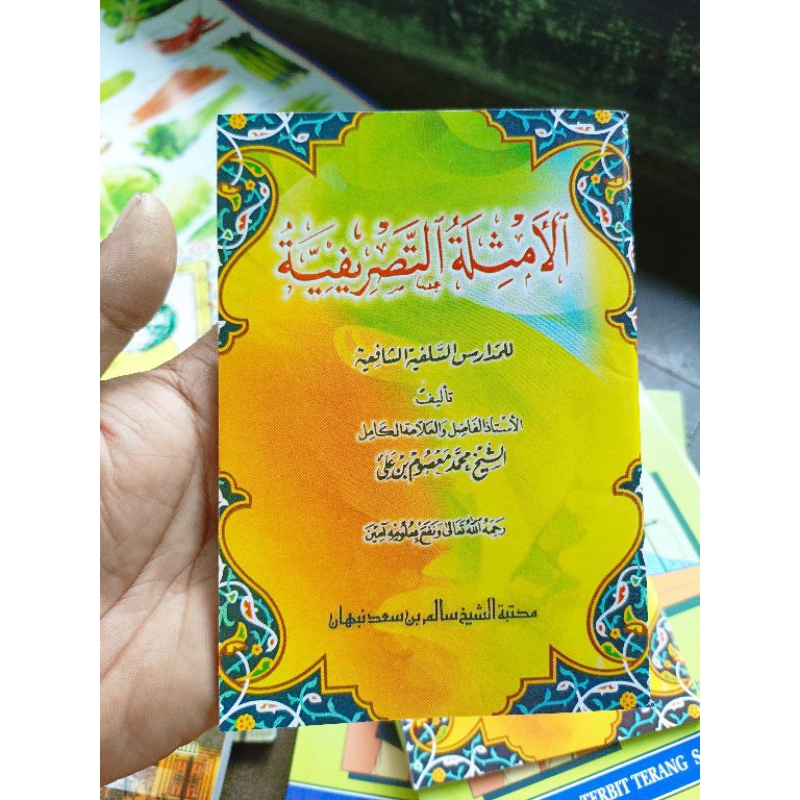 الأَمْثِلَةُ التَّصْرِيفِيَّةُ
للمدارس السلفية الشافعية
تأليف
الأستاذ الفاضل والعلامة الكامل
الشيخ محمد معصوم بن علي
رحمه الله تعالى ونفع بعلومه آمين
مكتبة الشيخ سالم بن سعد نبهان
TERBIT TERANG S